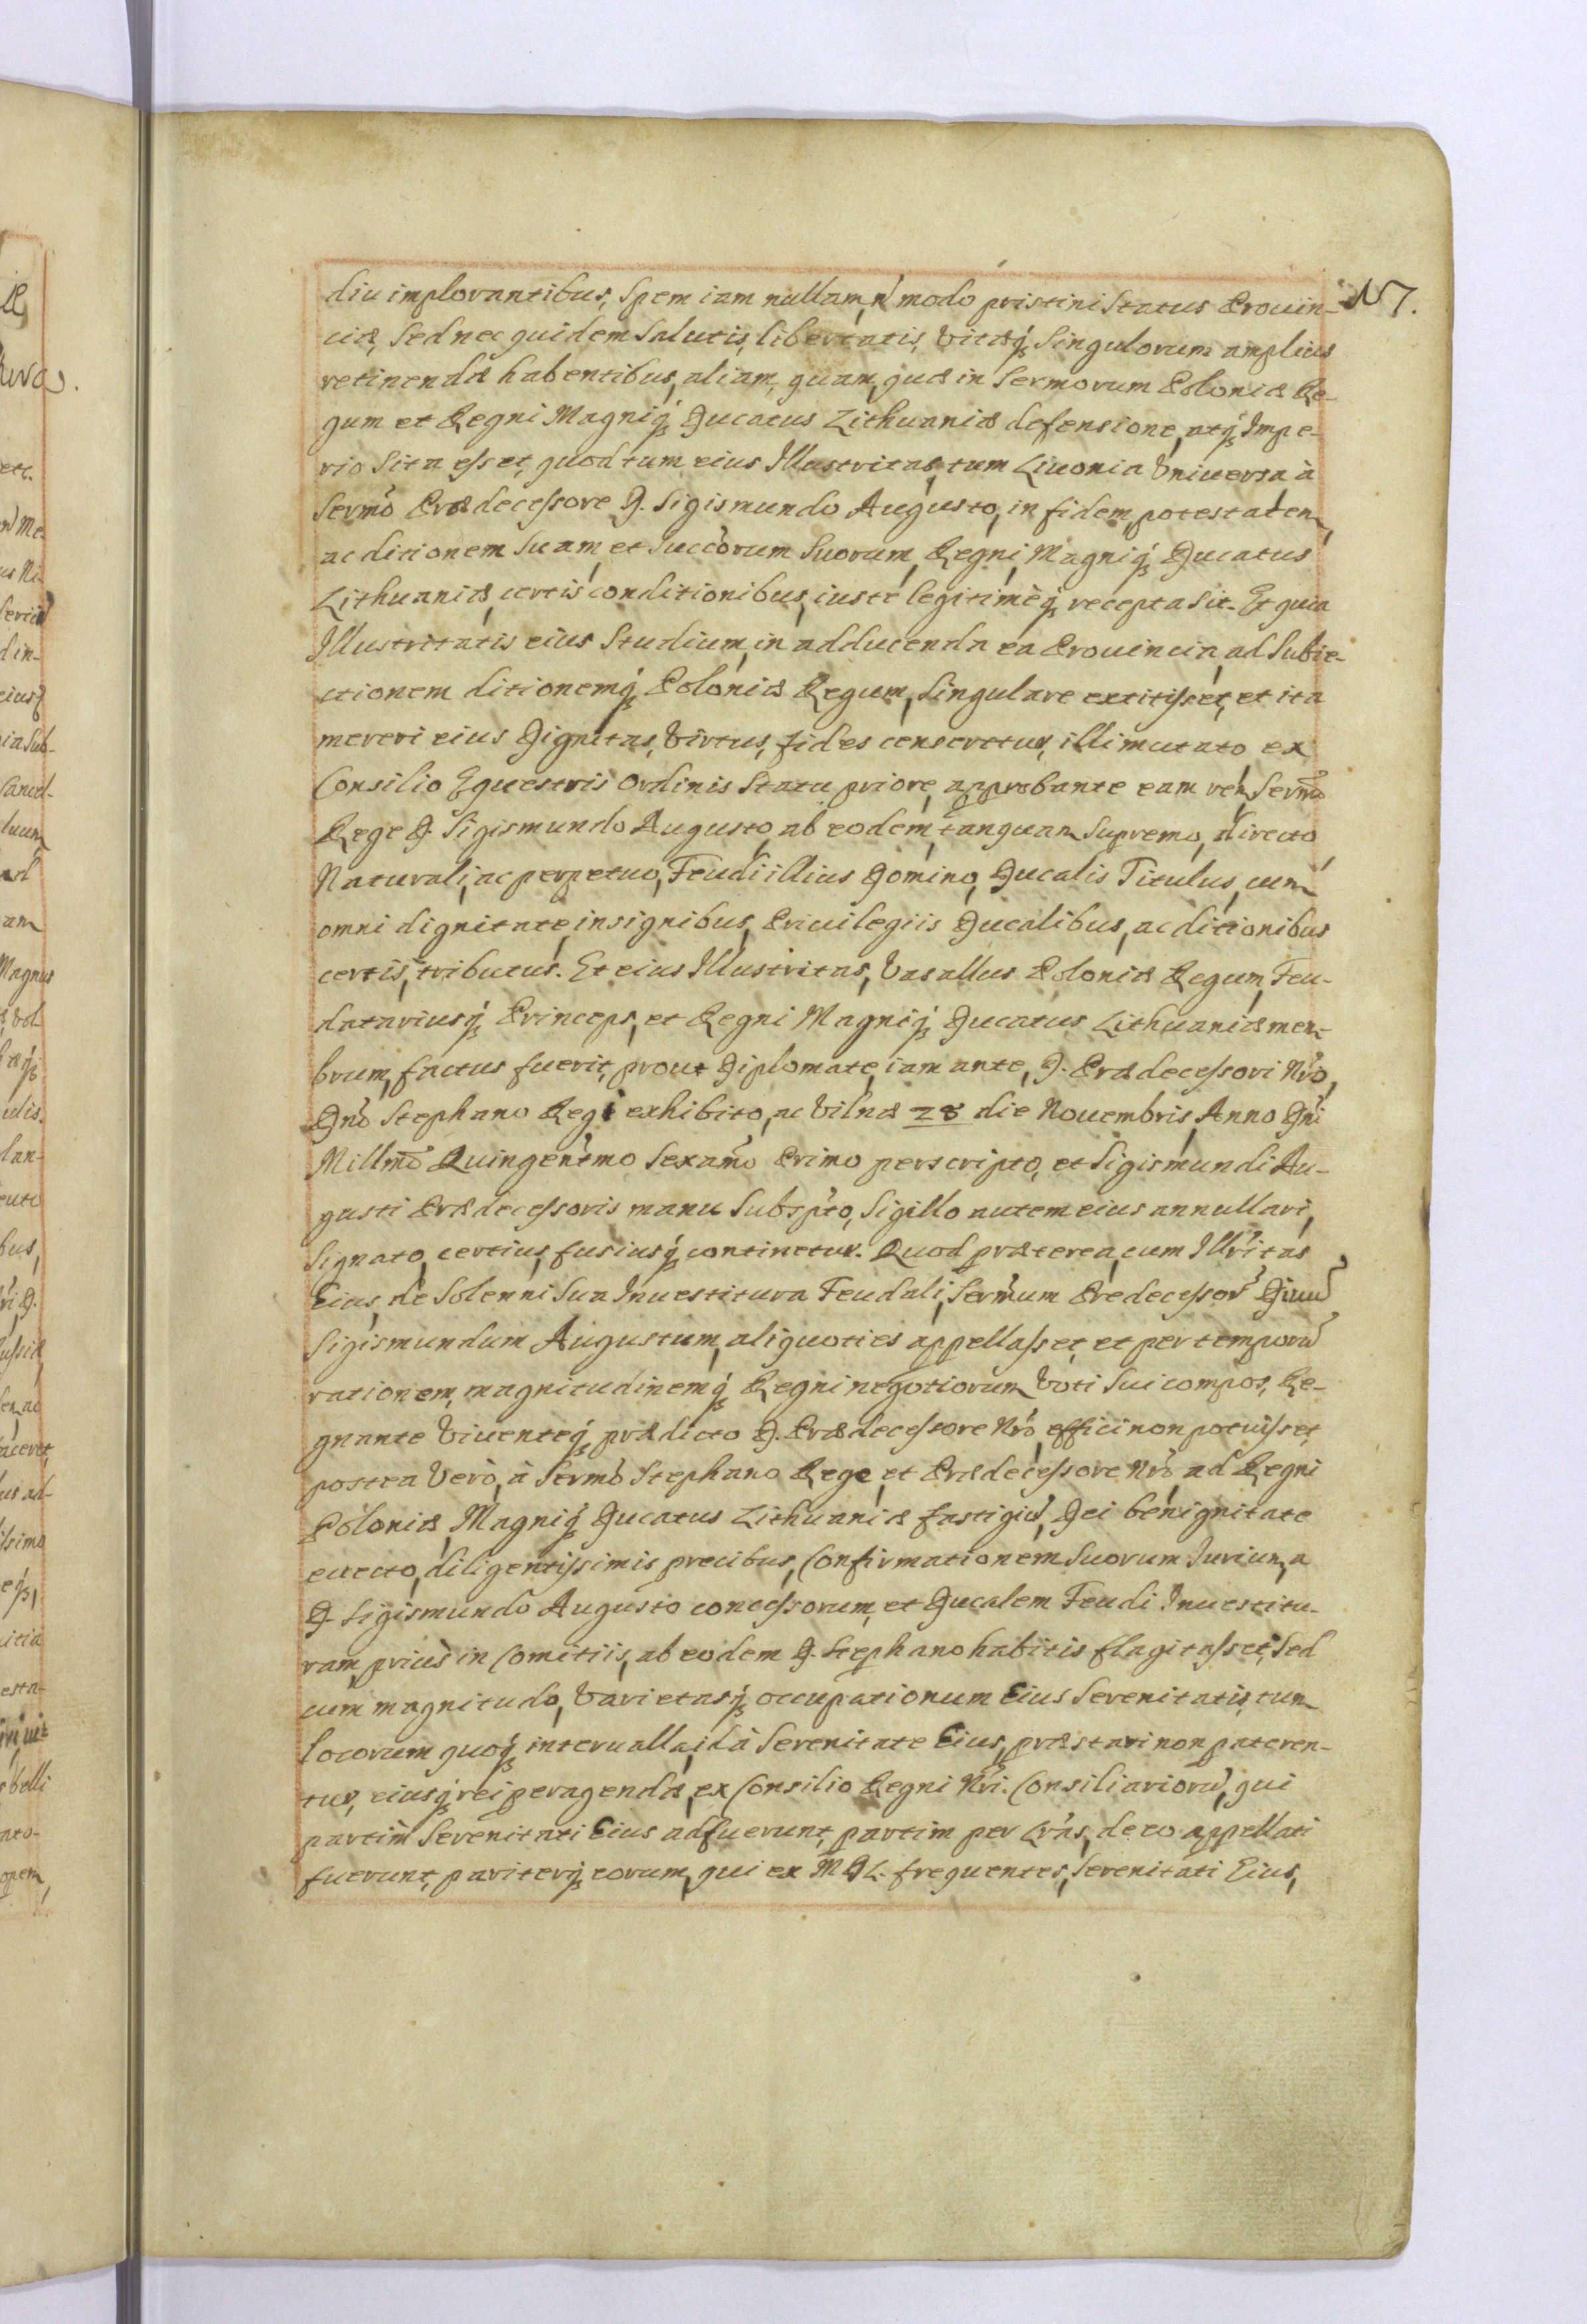 diu implorantibus, Spem iam nullam, nō modo pristini Status Prouin-
N7.
ciæ, Sed nec quidem Salutis, libertatis, vitæq; Singulorum amplius
retinendæ habentibus, aliam, quam, quæ in Sermorum Poloniæ Re-
gum et Regni Magniq; Ducatus Lithuaniæ defensione, atq; Impe-
rio Sita esset, quod tum eius Illustritas, tum Liuonia Vniuersa à
Sermo Prædecessore D. Sigismundo Augusto, in fidem, potestatem,
ac ditionem Suam, et Succorum Suorum, Regni, Magniq; Ducatus
Lithuaniæ, certis conditionibus, iustè legitimèq; recepta Sit. Et quia
Illustritatis eius Studium, in adducenda ea Prouincia, ad Subie-
ctionem ditionemq; Poloniæ Regum, Singulare extitisset, et ita
mereri eius Dignitas, Virtus, fides censeretur, illi mutato, ex
Consilio Equestris Ordinis Statu priore, approbante eam rem Sermo
Rege D. Sigismundo Augusto, ab eodem, tanquam Supremo, directo,
Naturali, ac perpetuo, Feudi illius Domino, Ducalis Titulus, cum
omni dignitate, insignibus, Priuilegiis Ducalibus, ac ditionibus
certis, tributus. Et eius Illustritas, Vasallus Poloniæ Regum, Feu-
datariusq; Princeps, et Regni Magniq; Ducatus Lithuaniæ mem-
brum, factus fuerit, prout Diplomate, iam ante, D. Prædecessori Nro,
Dno Stephano Regi exhibito, ac Vilnæ 28 die Nouembris, Anno Dni
Millmo Quingentmo Sexamo Primo perscripto, et Sigismundi Au-
gusti Prædecessoris manu Subspto, Sigillo autem eius annullari,
Signato, certius, fusiusq; continetur. Quod præterea, cum Illritas
Eius, de Solenni Sua Inuestitura Feudali, Sermum Predecessorē Diuū
Sigismundum Augustum, aliquoties appellasset, et per temporū
rationem, magnitudinemq; Regni negotiorum, Voti Sui compos, Re-
gnante Viuenteq; prædicto D. Prædecessore Nro, effici non potuisset,
postea Verò, à Sermo Stephano Rege, et Prædecessore Nro, ad Regni
Poloniæ, Magniq; Ducatus Lithuaniæ fastigiū, Dei benignitate
euecto, diligentissimis precibus, Confirmationem Suorum Iurium, a
D. Sigismundo Augusto concessorum, et Ducalem Feudi Inuestitu-
ram, priùs in Comitiis, ab eodem D. Stephano habitis flagitasset, Sed
cum magnitudo, Varietasq; occupationum Eius Serenitatis, tum
locorum quoq; interualla, id à Serenitate Eius, præstari non pateren-
tur, eiusq; rei peragendæ, ex Consilio Regni Nri. Consiliariorū, qui
partim Serenitati Eius adfuerunt, partim per Lras, de eo appellati
fuerunt, pariterq; eorum, qui ex M D L. frequentes, Serenitati Eius,